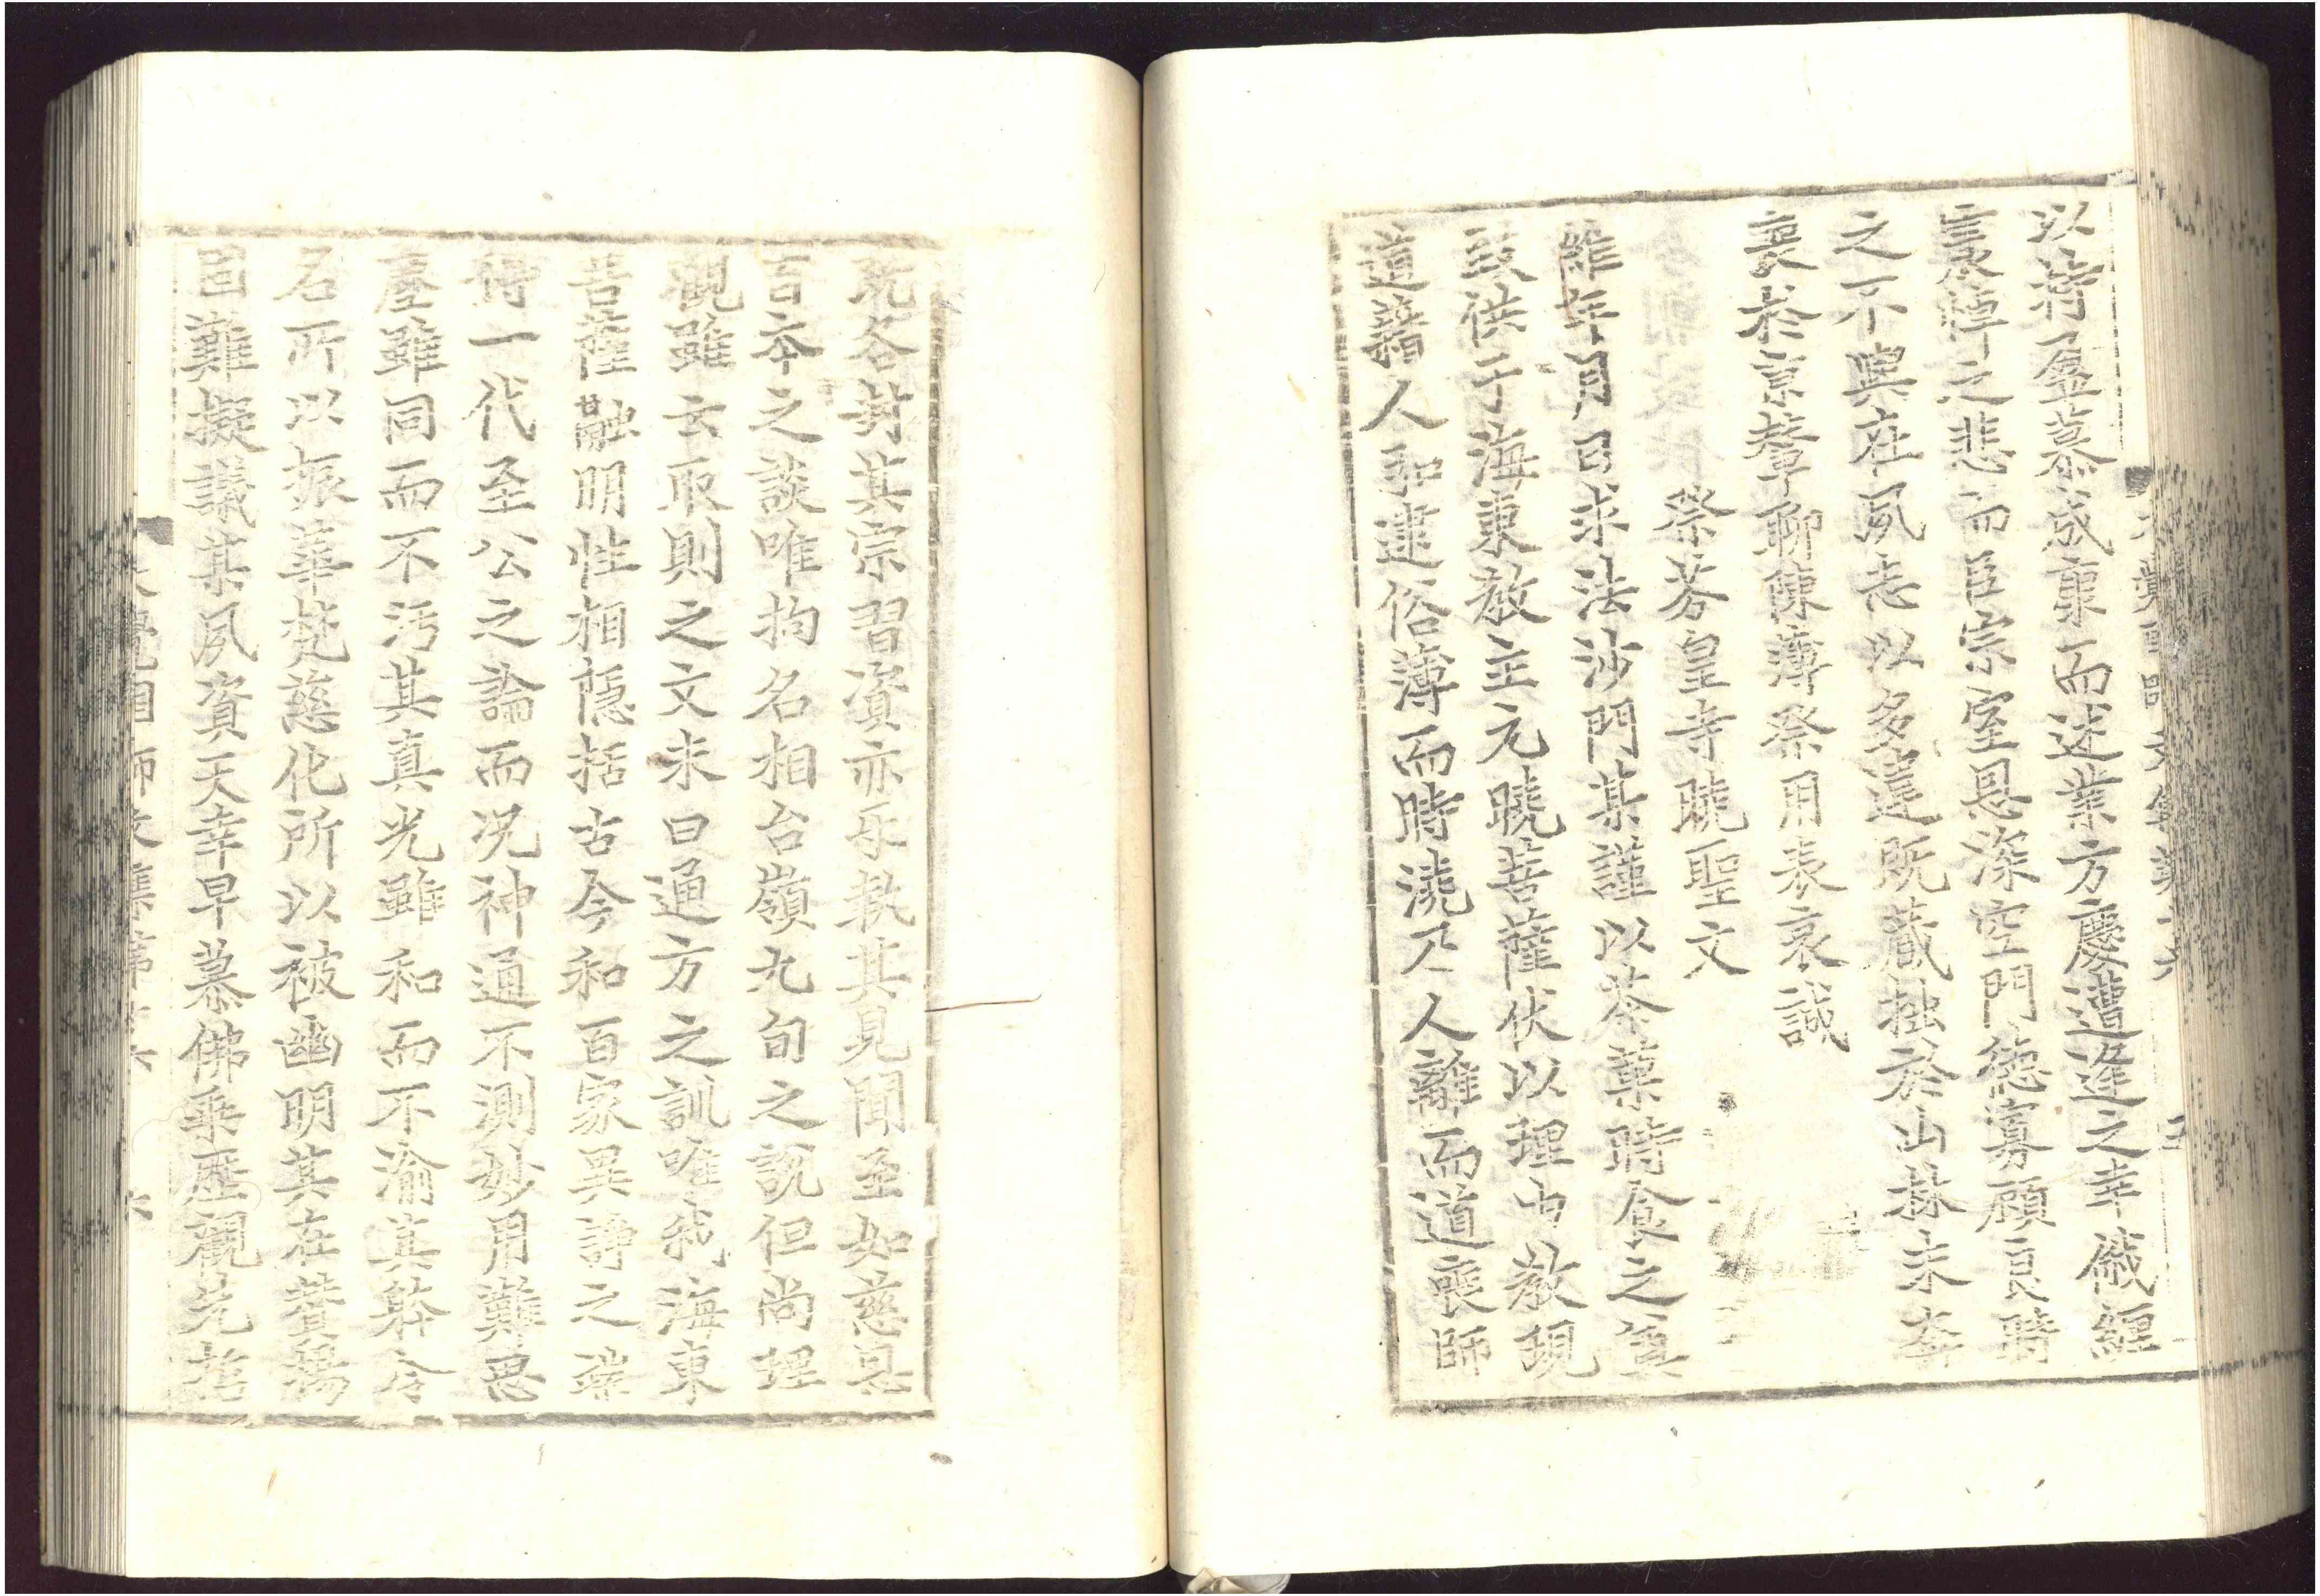 以將盈慕咸康而述業方慶遭逢之幸俄纏
之悲而臣宗室恩深空門德寡顧良時
之不與在夙志以多違既藏拙於山林未奔
喪於京輦聊陳薄祭用表哀誠
祭芬皇寺曉聖文
維年月日求法沙門某謹以茶菓時食之奠
致供于海東教主元曉菩薩伏以理由教現
道藉人弘逮俗薄而時澆乃人離而道喪師
既各封其宗習資亦互執其見聞至如慈恩
百本之談唯拘名相台嶺九旬之說但尚理
觀雖云取則之文未曰通方之訓唯我海東
菩薩融明性相隱括古今和百家異諍之端
得一代至公之論而況神通不測妙用難思
塵雖同而不汚其真光雖和而不渝其體令
名所以振華梵慈化所以被幽明其在贊揚
固難擬議某夙資天幸早慕佛乘歷觀先哲
大覺國師文集第十六
六